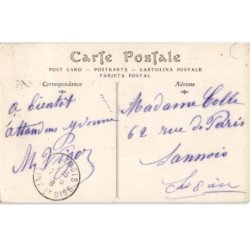 Carte Postale
POST CARD — POSTKARTE — CARTOLINA POSTALE
TARJETA POSTAL
Correspondance
Adresse
à bientôt
attendons yvonne
M Viger
Madame Colle
62 rue de Paris
Sannois
S et Oise